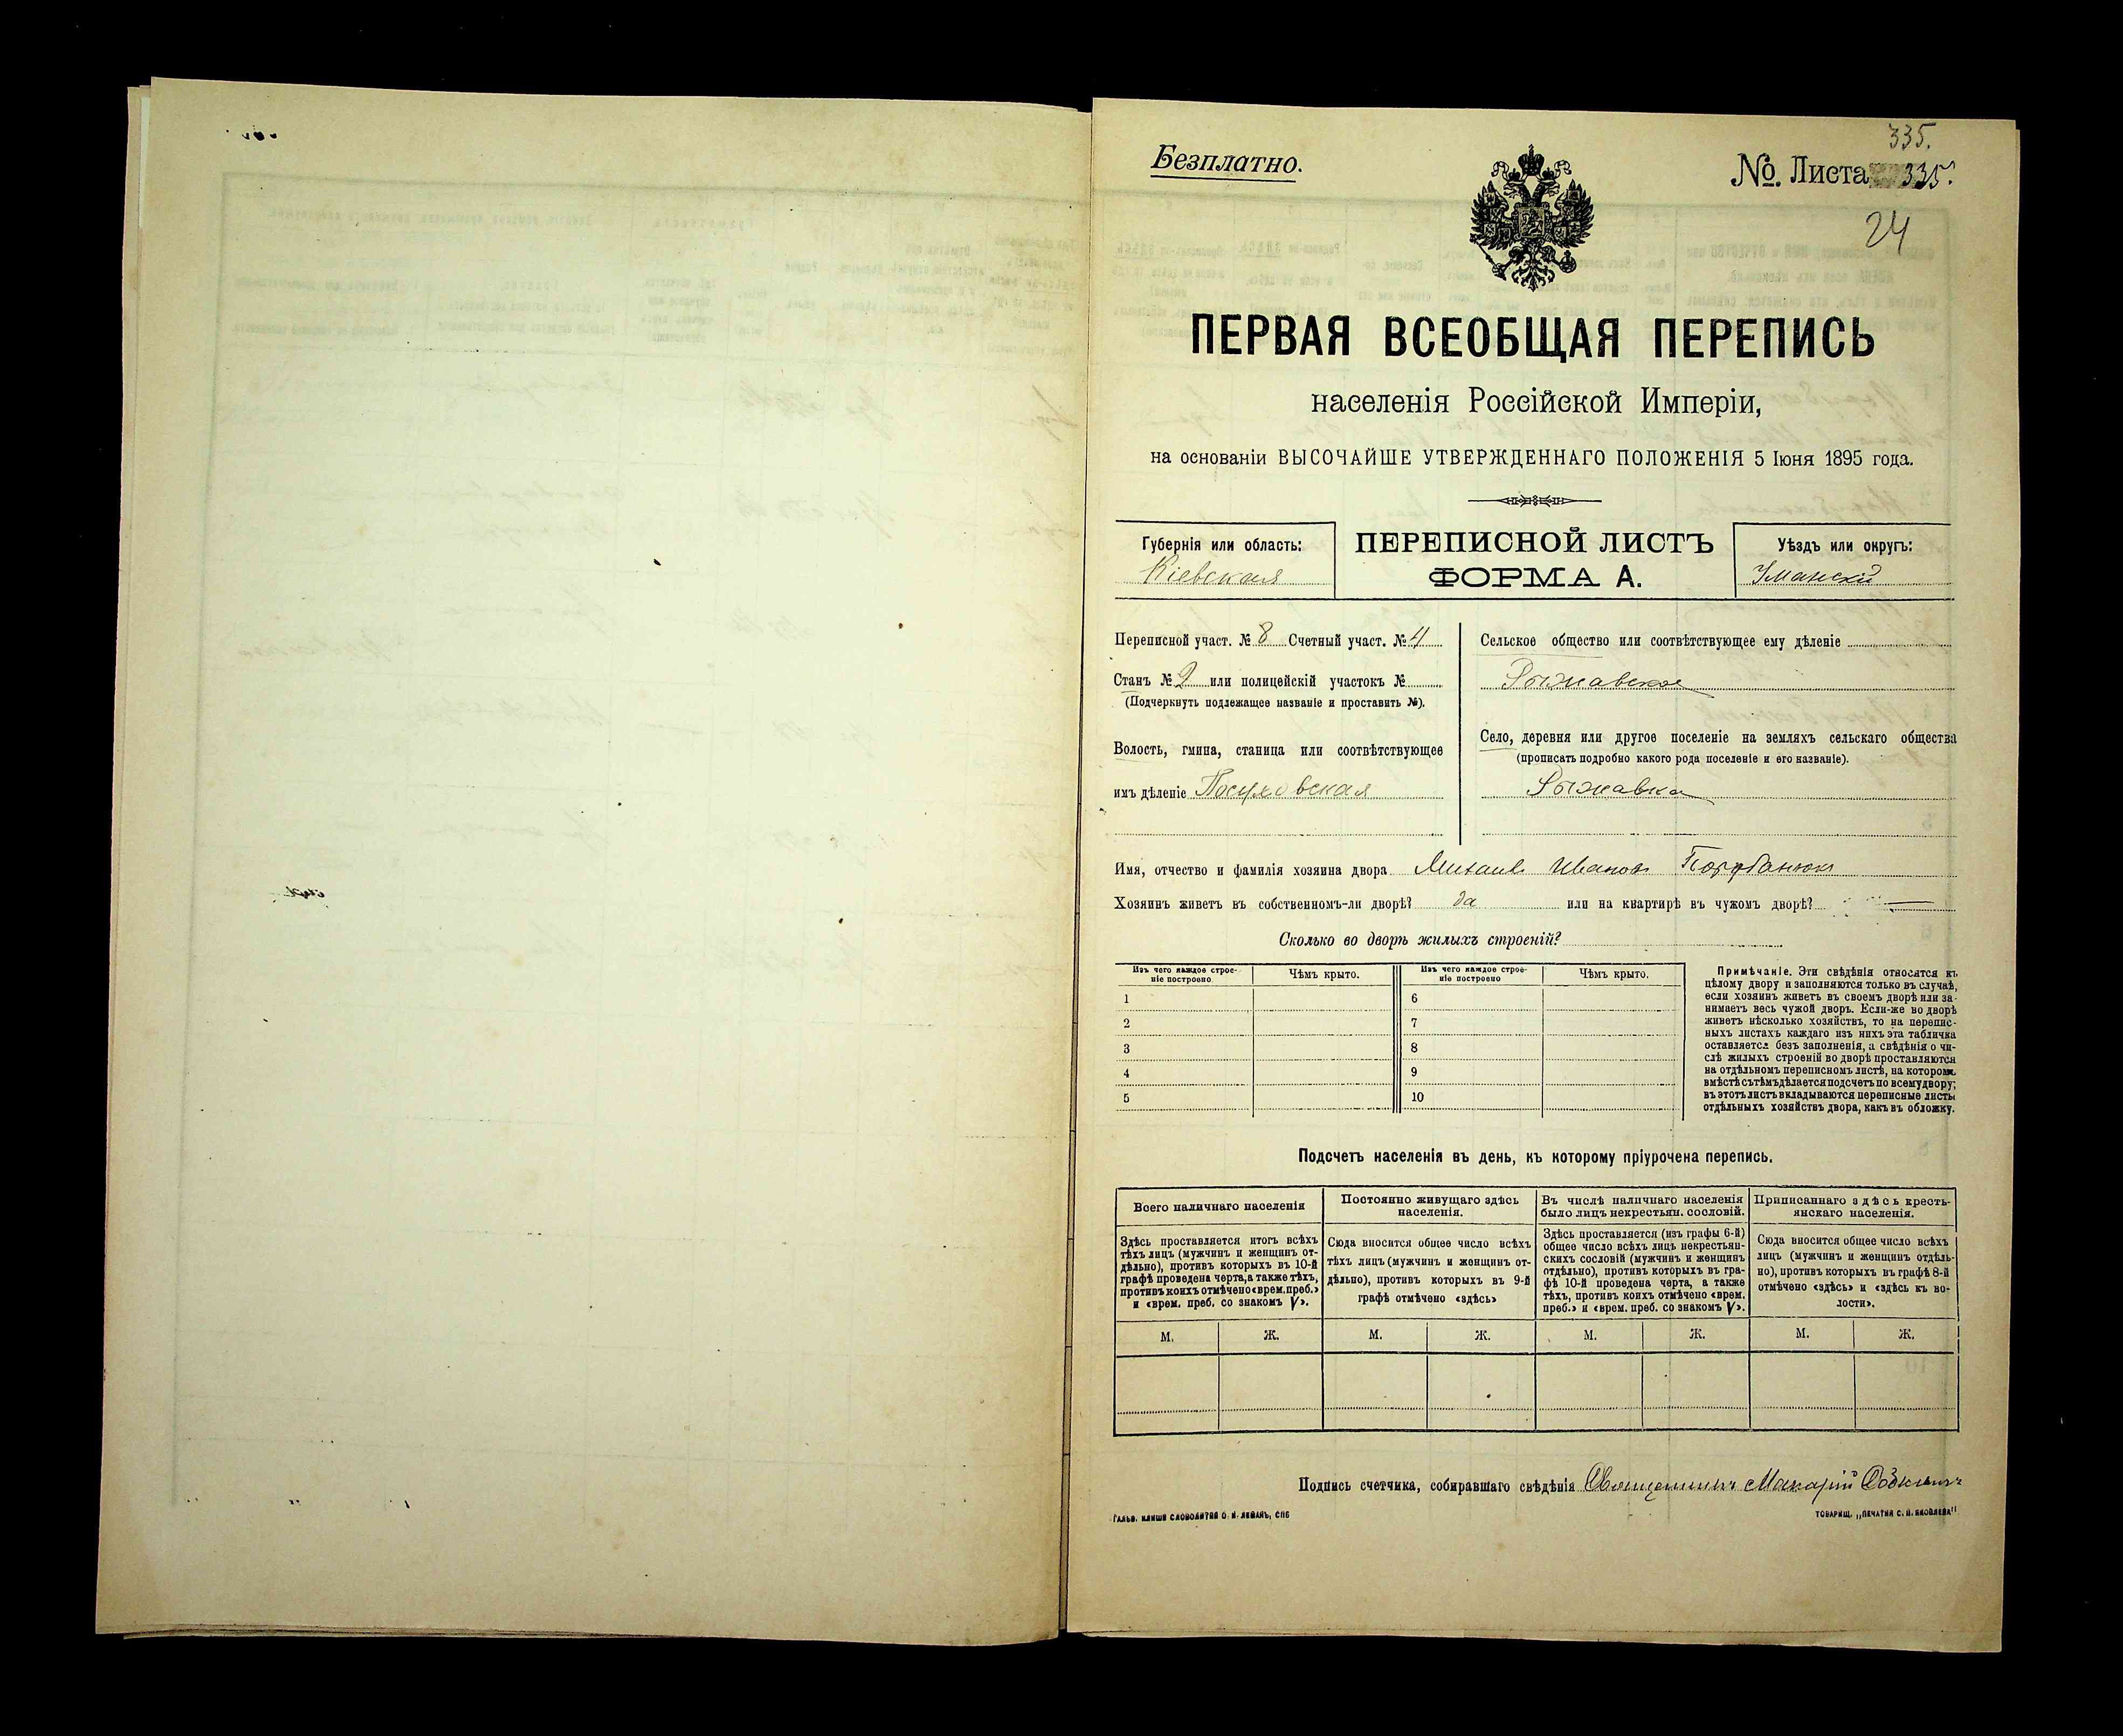 335.
Безплатно.
№ Листа 335.
24
ПЕРВАЯ ВСЕОБЩАЯ ПЕРЕПИСЬ
населенія Россійской Имперіи,
на основаніи ВЫСОЧАЙШЕ УТВЕРЖДЕННАГО ПОЛОЖЕНІЯ 5 Іюня 1895 года.
Губернія или область:
Кіевская
ПЕРЕПИСНОЙ ЛИСТЪ
ФОРМА А.
Уѣздъ или округъ:
Уманскій
Переписной участ. № 8 Счетный участ. № 4
Станъ № 2 или полицейскій участокъ №
(Подчеркнуть подлежащее названіе и проставить №).
Волость, гмина, станица или соотвѣтствующее
имъ дѣленіе
Сельское общество или соотвѣтствующее ему дѣленіе
Рыжавское
Село, деревня или другое поселеніе на земляхъ сельскаго общества
(прописать подробно какого рода поселеніе и его названіе).
Рыжавка
Имя, отчество и фамилія хозяина двора Михаилъ Ивановъ
Хозяинъ живетъ въ собственномъ-ли дворѣ? да или на квартирѣ въ чужомъ дворѣ?
Сколько во дворѣ жилыхъ строеній?
Изъ чего каждое строе-
ніе построено
Чѣмъ крыто.
Изъ чего каждое строе-
ніе построено
Чѣмъ крыто.
1
6
2
7
3
8
4
9
5
10
Примѣчаніе. Эти свѣдѣнія относятся къ
цѣлому двору и заполняются только въ случаѣ,
если хозяинъ живетъ въ своемъ дворѣ или за-
нимаетъ весь чужой дворъ. Если-же во дворѣ
живетъ нѣсколько хозяйствъ, то на перепис-
ныхъ листахъ каждаго изъ нихъ эта табличка
оставляется безъ заполненія, а свѣдѣнія о чи-
слѣ жилыхъ строеній во дворѣ проставляются
на отдѣльномъ переписномъ листѣ, на которомъ
вмѣстѣ съ тѣмъ дѣлается подсчетъ по всему двору;
въ этотъ листъ вкладываются переписные листы
отдѣльныхъ хозяйствъ двора, какъ въ обложку.
Подсчетъ населенія въ день, къ которому пріурочена перепись.
Всего наличнаго населенія
Здѣсь проставляется итогъ всѣхъ
тѣхъ лицъ (мужчинъ и женщинъ от-
дѣльно), противъ которыхъ въ 10-й
графѣ проведена черта, а также тѣхъ,
противъ коихъ отмѣчено «врем. преб.»
и «врем. преб. со знакомъ V».
Постоянно живущаго здѣсь
населенія.
Сюда вносится общее число всѣхъ
тѣхъ лицъ (мужчинъ и женщинъ от-
дѣльно), противъ которыхъ въ 9-й
графѣ отмѣчено «здѣсь»
Въ числѣ наличнаго населенія
было лицъ некрестьян. сословій.
Здѣсь проставляется (изъ графы 6-й)
общее число всѣхъ лицъ некрестьян-
скихъ сословій (мужчинъ и женщинъ
отдѣльно), противъ которыхъ въ гра-
фѣ 10-й проведена черта, а также
тѣхъ, противъ коихъ отмѣчено «врем.
преб.» и «врем. преб. со знакомъ V».
Приписаннаго здѣсь кресть-
янскаго населенія.
Сюда вносится общее число всѣхъ
лицъ (мужчинъ и женщинъ отдѣль-
но), противъ которыхъ въ графѣ 8-й
отмѣчено «здѣсь» и «здѣсь къ во-
лости».
М. Ж. М. Ж. М. Ж. М. Ж.
Подпись счетчика, собиравшаго свѣдѣнія Священникъ Макарій
ГАЛЬВ. КЛИШЕ СЛОВОЛИТНИ О. И. ЛЕМАНЪ, СПБ
ТОВАРИЩ. „ПЕЧАТНЯ С. П. ЯКОВЛЕВА"